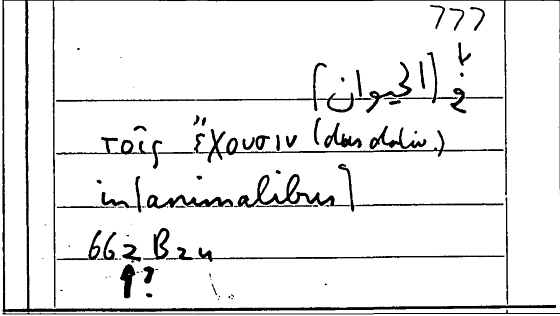 777
في [الحيوان]
τοῖς ἔχουσιν
in [animalibus]
662 B 24
?